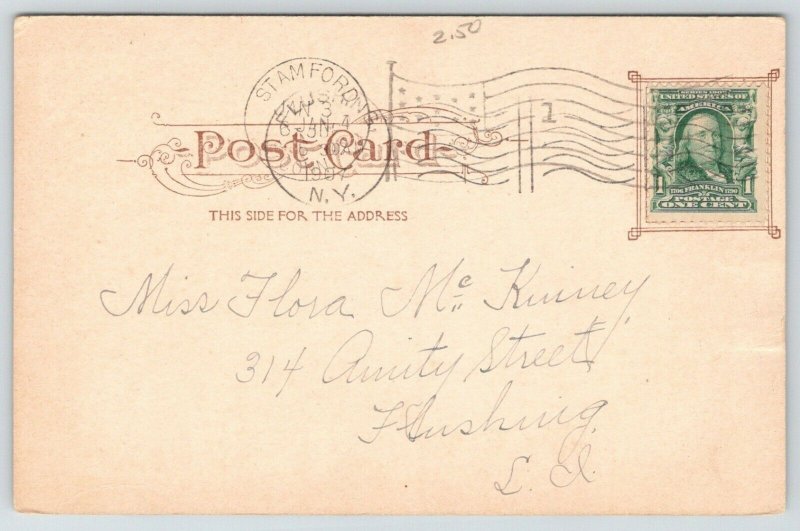 2.50
STAMFORD
N.Y.
1907
1
SERIES 1902
UNITED STATES OF
AMERICA
1706 FRANKLIN 1790
POSTAGE
1 ONE CENT 1
Post Card
THIS SIDE FOR THE ADDRESS
Miss Flora Mc Kinney
314 Amity Street
Flushing
L. I.